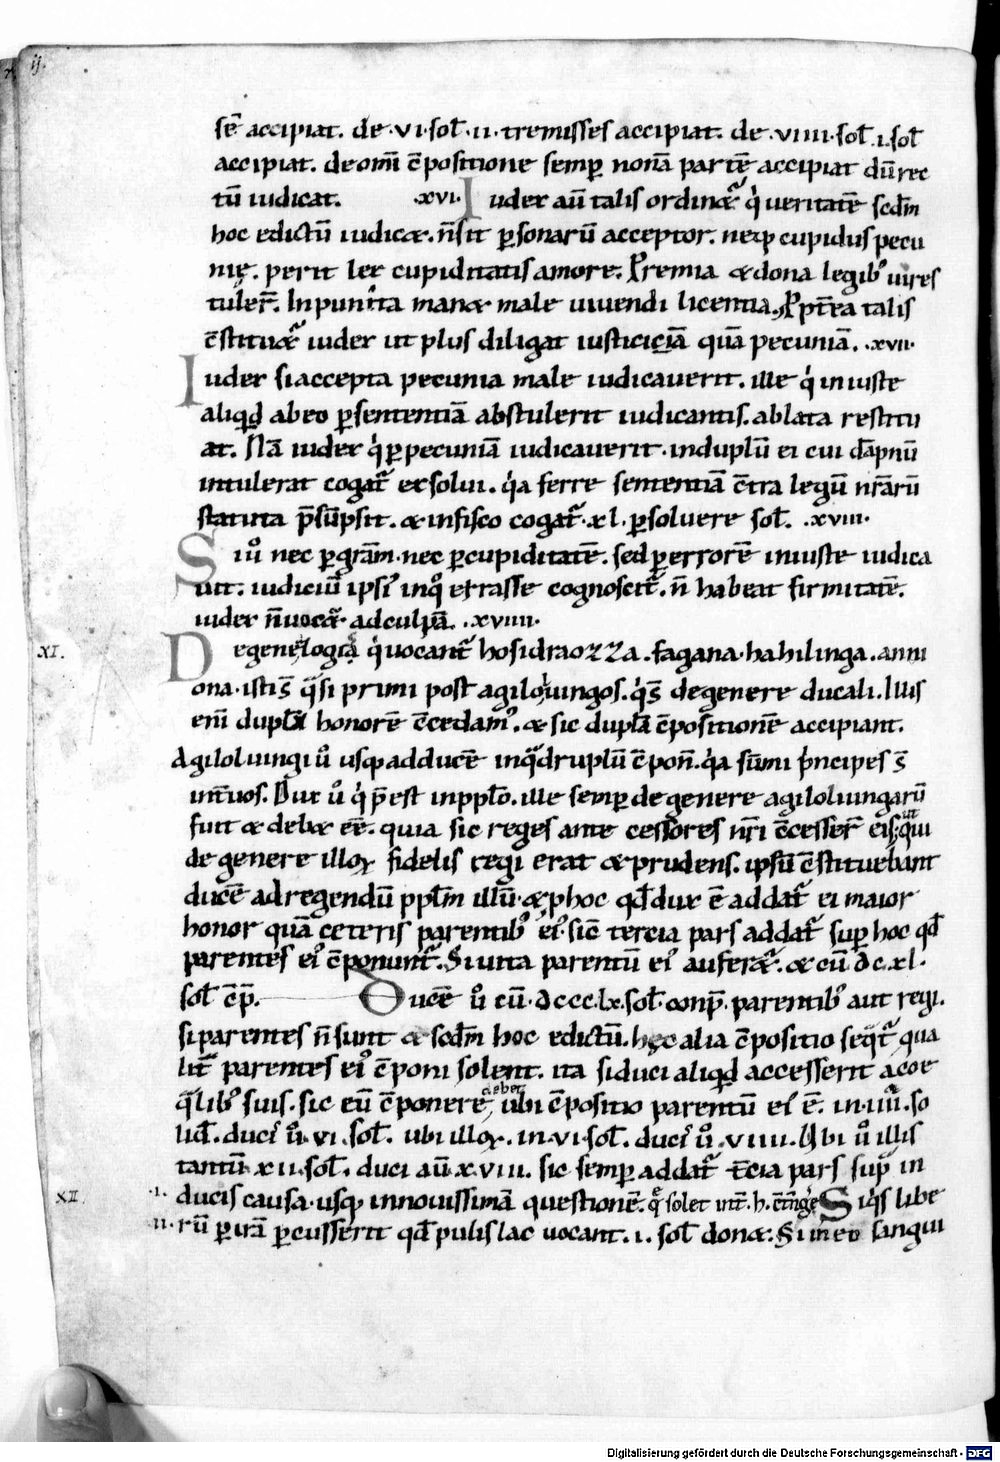 ij.
sē accipiat. de·vi·sol̄·ii·tremisses accipiat. de·viiii·sol̄.i.sol̄
accipiat. de om̄i c̄positione semꝑ nonā partē accipiat dū rec
tū iudicat. ·xvi· Iudex aū talis ordinet᷑ qͥ ueritatē scd̄m
hoc edictū iudicet. n̄ sit ꝑsonarū acceptor. neqꝫ cupidus pecu
nię. perit lex cupiditatis amore. Premia et dona legibꝰ uires
tuler̄. Inpunita manet male uiuendi licentia. Ppt̄ea talis
c̄stituet᷑ iudex ut plus diligat iusticiā quā pecuniā. ·xvii·
Iudex si accepta pecunia male iudicauerit. ille qͥ iniuste
aliqͥd ab eo ꝑ sententiā abstulerit iudicantis. ablata restitu
at. Nā iudex qͥ ꝑ pecuniā iudicauerit·induplū ei cui dāpnū
intulerat cogat᷑ exsolui. qͥa ferre sententiā c̄tra legū nr̄arū
statuta p̄sūpsit. et infisco cogat᷑·xl·ꝑsoluere sol̄. ·xviii·
Siu̾ nec ꝑ gr̄am·nec ꝑ cupiditatē. sed ꝑ errorē iniuste iudica
uit. iudiciū ipsiꝰ inq̊ errasse cognoscit᷑. n̄ habeat firmitatē.
iudex n̄ uocet᷑ ad culpā. ·xviiii·
XI.
De genelogia qͥ uocant᷑ hosidraozza. fagana·hahilinga.anni
ona·isti s̄ qͣsi primi post agiloluingos. qͥ s̄ de genere ducali. Illis
eni duplū honorē c̄cedamꝰ. et sic duplā c̄positionē accipiant.
Agiloluingi u̾ usqꝫ ad ducē inqͣdruplū c̄pon̄. qͥa sūmi pͥncipes s̄
int̄ uos. Dux u̾ qͥ p̄est in ppl̄o. ille semꝑ de genere agiloluingarū
fuit et debet eē. quia sic reges antecessores nr̄i c̄cesser̄ eis; ut qui
de genere illoꝝ fidelis regi erat et prudens. ipsū c̄stituebant
ducē ad regendū ppl̄m illū·et ꝑ hoc qd̄ dux ē addat᷑ ei maior
honor quā ceteris parentibꝰ eiꝰ. sic tercia pars addat᷑ suꝑ hoc qd̄
parentes eiꝰ c̄ponunt᷑. Si uita parentū eiꝰ auferet᷑. et cū dc.xl·
sol̄ c̄p̄. Ducē u̾ cū·dcccc lx·sol̄·conp̄. parentibꝰ aut regi.
si parentes n̄ sunt et scd̄m hoc edictū. hęc alia c̄positio seqͥt᷑ qua
lit̄ parentes eiꝰ c̄poni solent. ita si duci aliqͥd accesserit a coe
qͣlibꝰ suis. sic eū c̄ponere debet, ubi c̄positio parentū eiꝰ ē. in·iiii·so
lid̄. duciꝰ u̾·vi·sol̄. ubi illoꝝ. in·vi·sol̄. duciꝰ u̾·viiii. Ubi u̾ illis
tantū xii·sol̄. duci aū xviii. sic semꝑ addat᷑ t̄cia pars suꝑ in
XII. ·i· ducis causa·usqꝫ in nouissimā questionē. qͣ solet int̄. h. c̄tīgē Si qͥs libe
·ii· rū ꝑ irā ꝑcusserit qd̄ pulislac uocant. i. sol̄ donet. Si in eo sangui
Digitalisierung gefördert durch die Deutsche Forschungsgemeinschaft - DFG